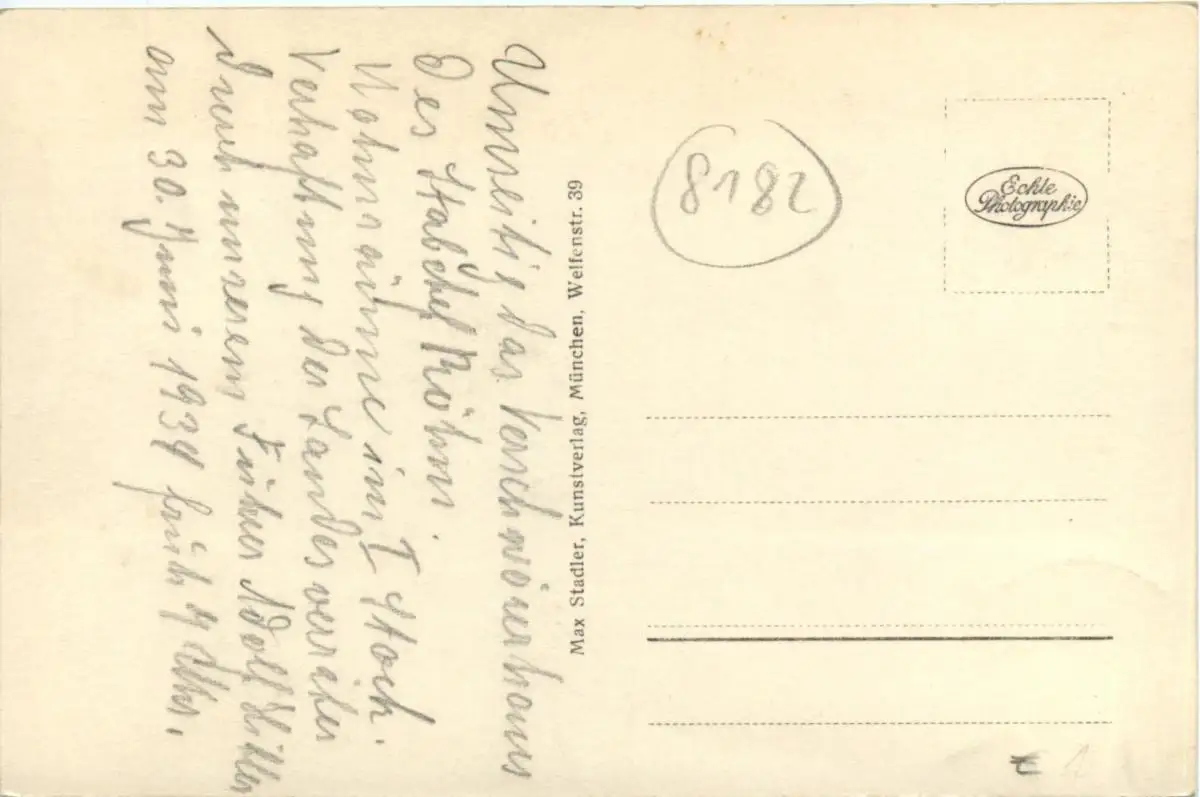 Umseitig das Verschwörerhaus
Der Stabchef Röhm.
Wohnräume im I Stock.
Verhaftung der Landesverräter
durch unseren Führer Adolf Hitler
am 30. Juni 1934 früh 7 Uhr.
Max Stadler, Kunstverlag, München, Welfenstr. 39
8182
Echte
Photographie